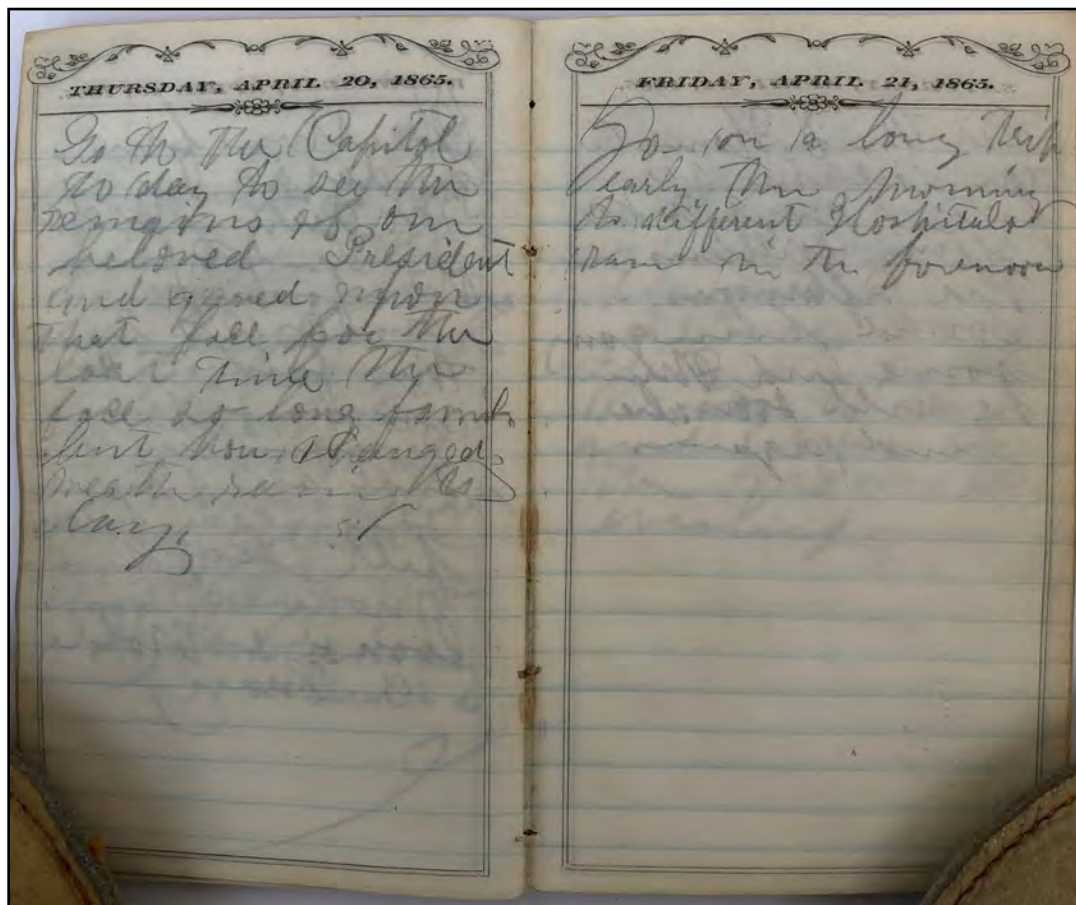 THURSDAY, APRIL 20, 1865.
Go to the Capitol
to day to see the
remains of our
beloved President
and gazed upon
that face for the
last time the
face so long
but how changed
death
FRIDAY, APRIL 21, 1865.
Go on a long trip
early this morning
to different Hospitals
rain in the forenoon